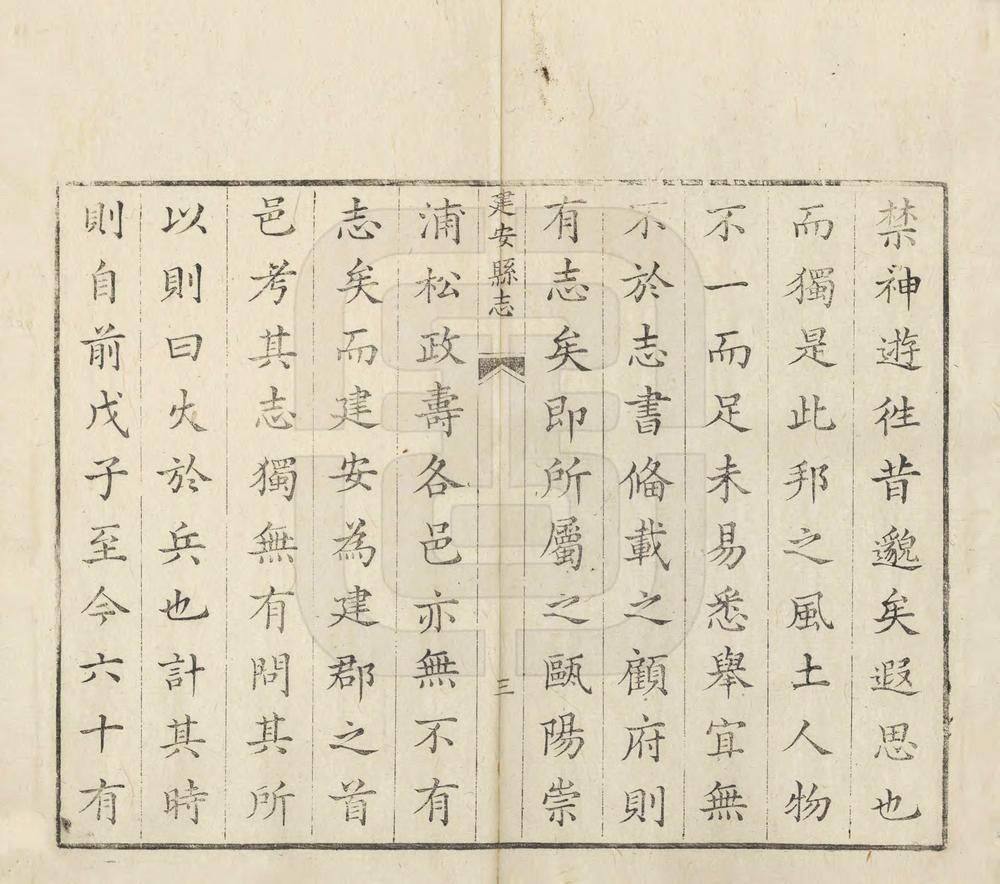 禁神遊徃昔邈矣遐思也
而獨是此邦之風土人物
不一而足未易悉舉冝無
不於志書偹載之顧府則
有志矣即所屬之甌陽崇
建安縣志
三
浦松政壽各邑亦無不有
志矣而建安為建郡之首
邑考其志獨無有問其所
以則曰火於兵也計其時
則自前戊子至今六十有